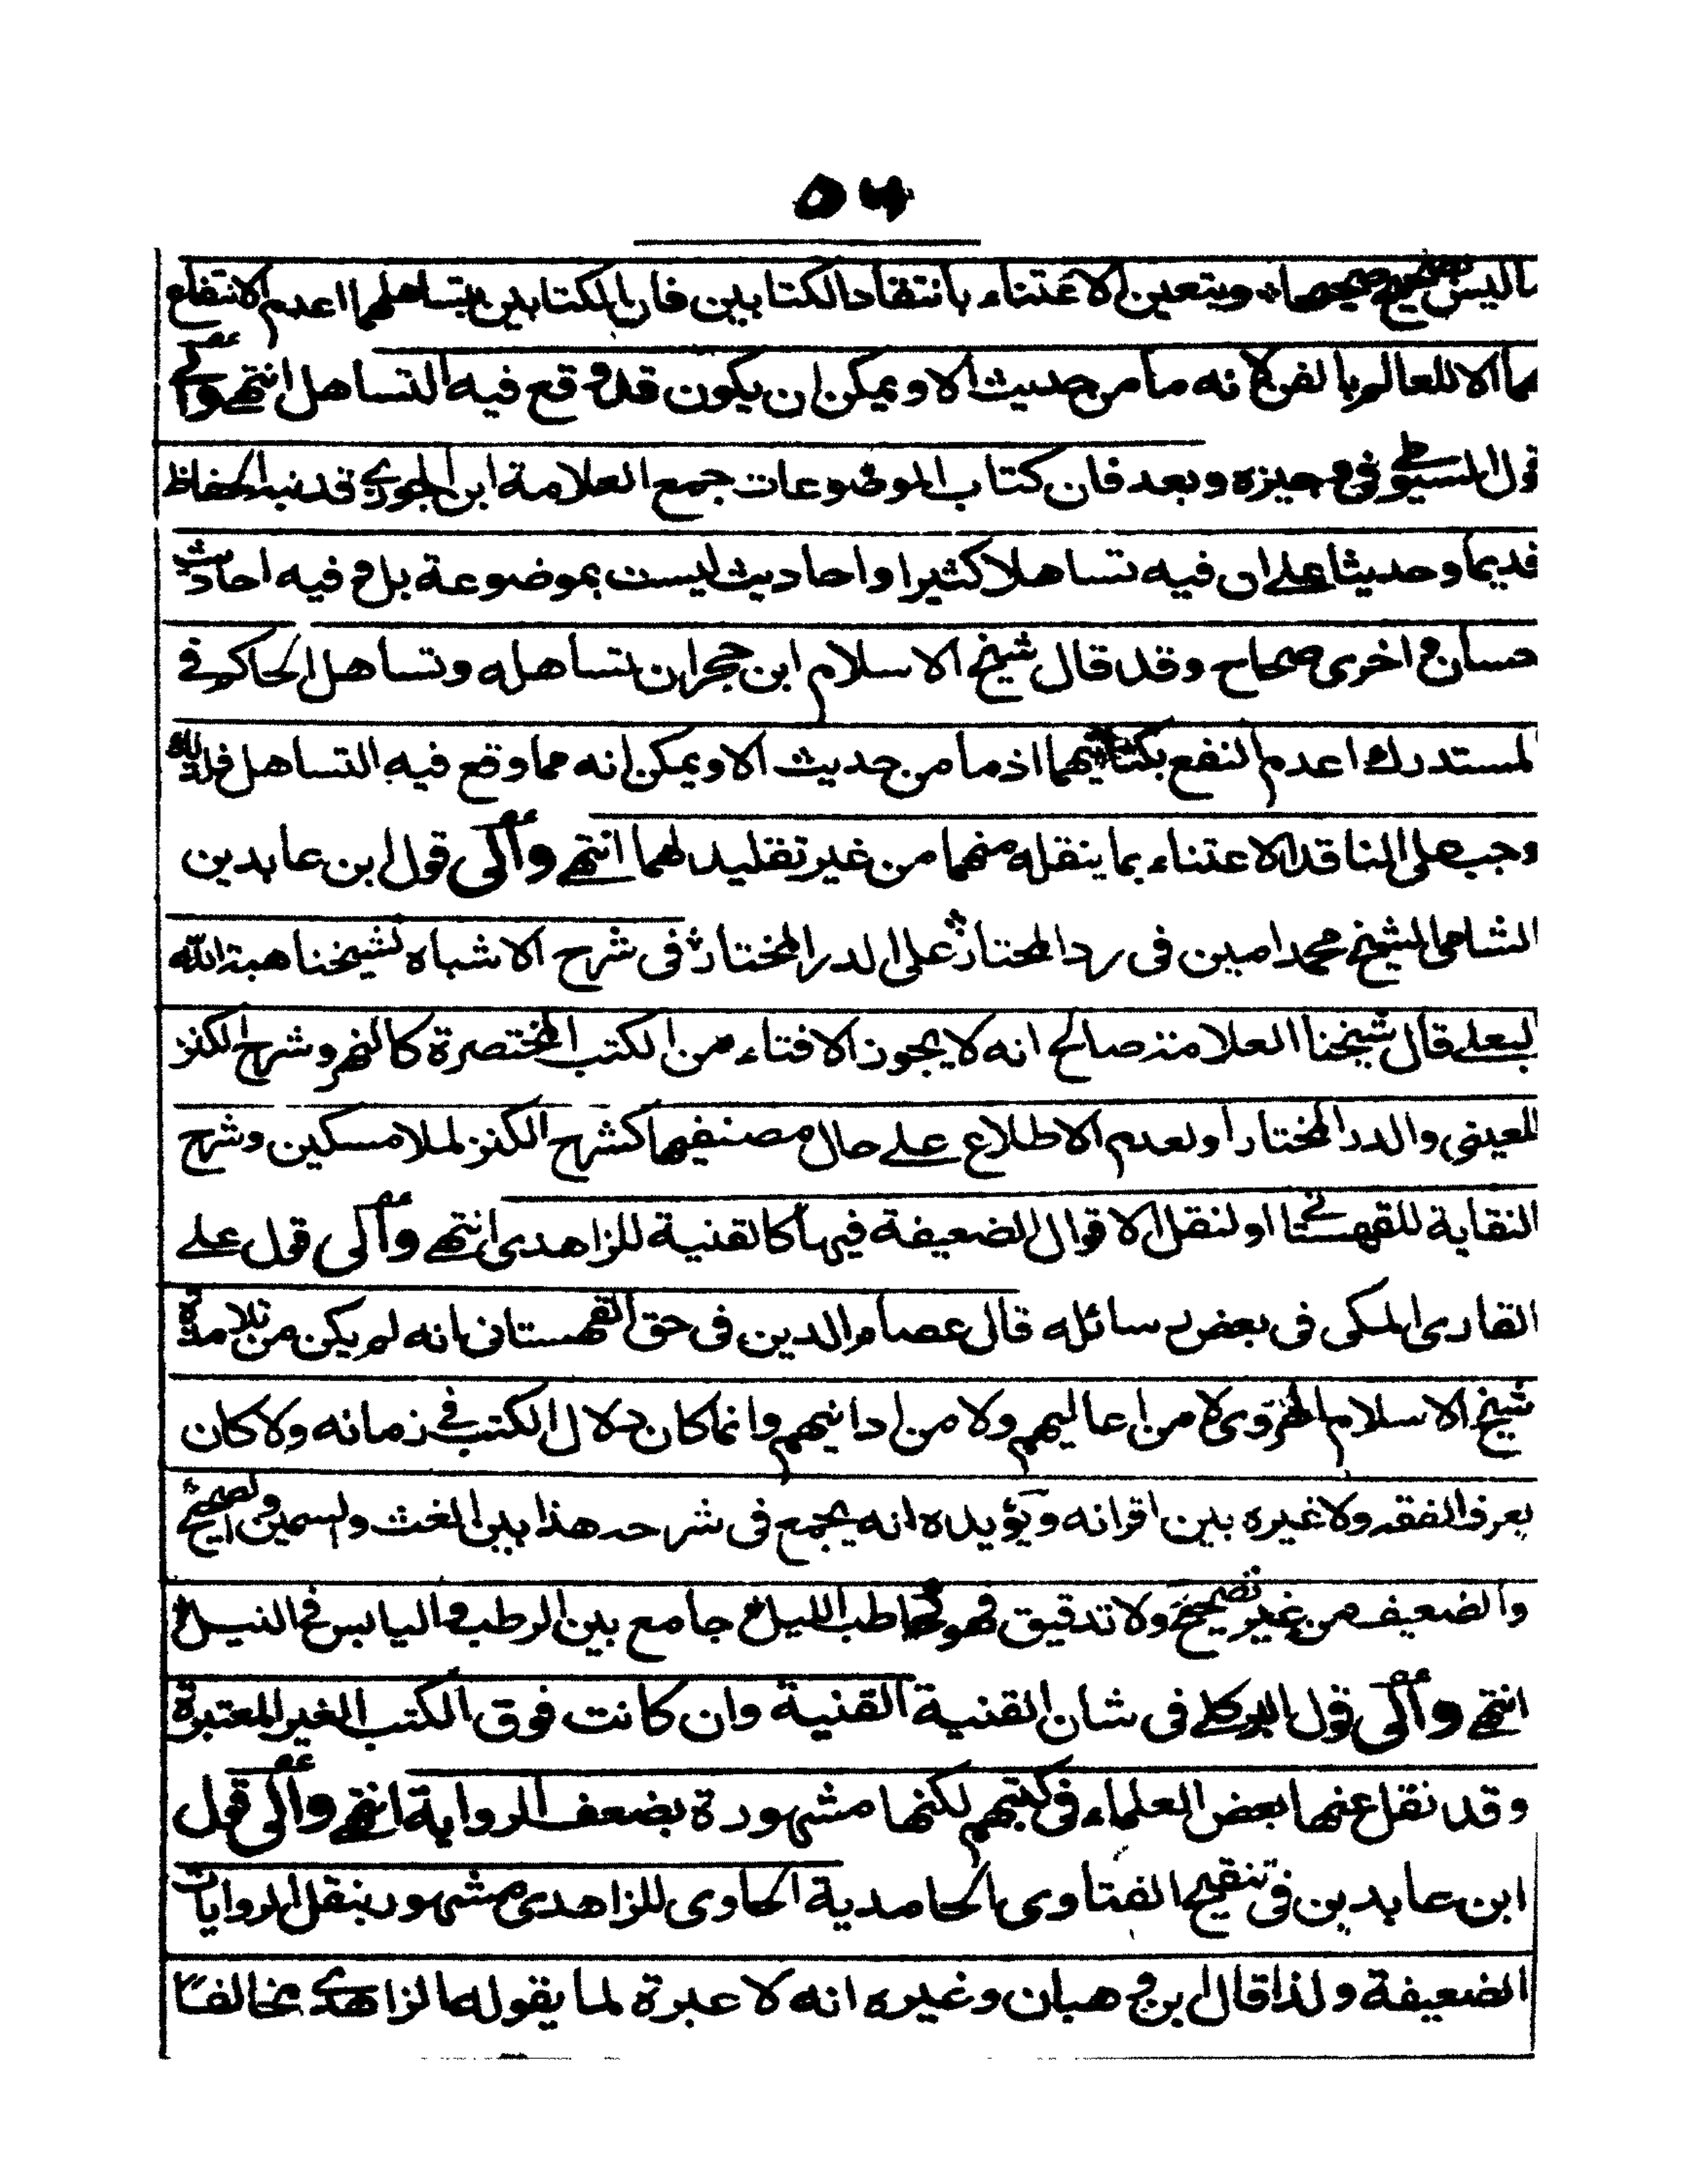 ٥٤
ماليس بصحيح صحيحا ويتعين الاعتناء بانتقاد الكتابين فان الكتابين بتساهلهما اعدم الانتفاع
بهما الا للعالم بالفن لانه ما من حديث الا ويمكن ان يكون قد وقع فيه التساهل انتهى والى
قول السيوطى فى وجيزه وبعد فان كتاب الموضوعات جمع العلامة ابن الجوزى قد نبه الحفاظ
قديما وحديثا على ان فيه تساهلا كثيرا واحاديث ليست بموضوعة بل و فيه احاديث
حسان و اخرى صحاح وقد قال شيخ الاسلام ابن حجر ان تساهله وتساهل الحاكم فى
المستدرك اعدم النفع بكتابيهما اذ ما من حديث الا ويمكن انه مما وقع فيه التساهل فلذلك
وجب على الناقد الاعتناء بما ينقله منهما من غير تقليد لهما انتهى والى قول ابن عابدين
الشامى الشيخ محمد امين فى رد المختار على الدر المختار فى شرح الاشباه لشيخنا هبة الله
البعلى قال شيخنا العلامة صالح انه لا يجوز الافتاء من الكتب المختصرة كالنهر وشرح الكنز
للعينى والدر المختار او لعدم الاطلاع على حال مصنفيها كشرح الكنز لملا مسكين وشرح
النقاية للقهستانى او لنقل الاقوال الضعيفة فيها كالقنية للزاهدى انتهى والى قول على
القارى المكى فى بعض رسائله قال عصام الدين فى حق القهستانى انه لم يكن من تلامذة
شيخ الاسلام الهروى لا من اعاليهم ولا من ادانيهم وانما كان دلال الكتب فى زمانه ولا كان
يعرف الفقه ولا غيره بين اقرانه ويؤيده انه يجمع فى شرحه هذا بين الغث والسمين والصحيح
والضعيف من غير تصحيح ولا تدقيق فهو كحاطب الليل جامع بين الرطب واليابس فى النيل
انتهى والى قول البركلى فى شان القنية القنية وان كانت فوق الكتب الغير المعتبرة
وقد نقل عنها بعض العلماء فى كتبهم لكنها مشهورة بضعف الرواية انتهى والى قول
ابن عابدين فى تنقيح الفتاوى الحامدية الحاوى للزاهدى مشهور بنقل الروايات
الضعيفة ولذا قال ابن وهبان وغيره انه لا عبرة لما يقوله الزاهدى مخالفا